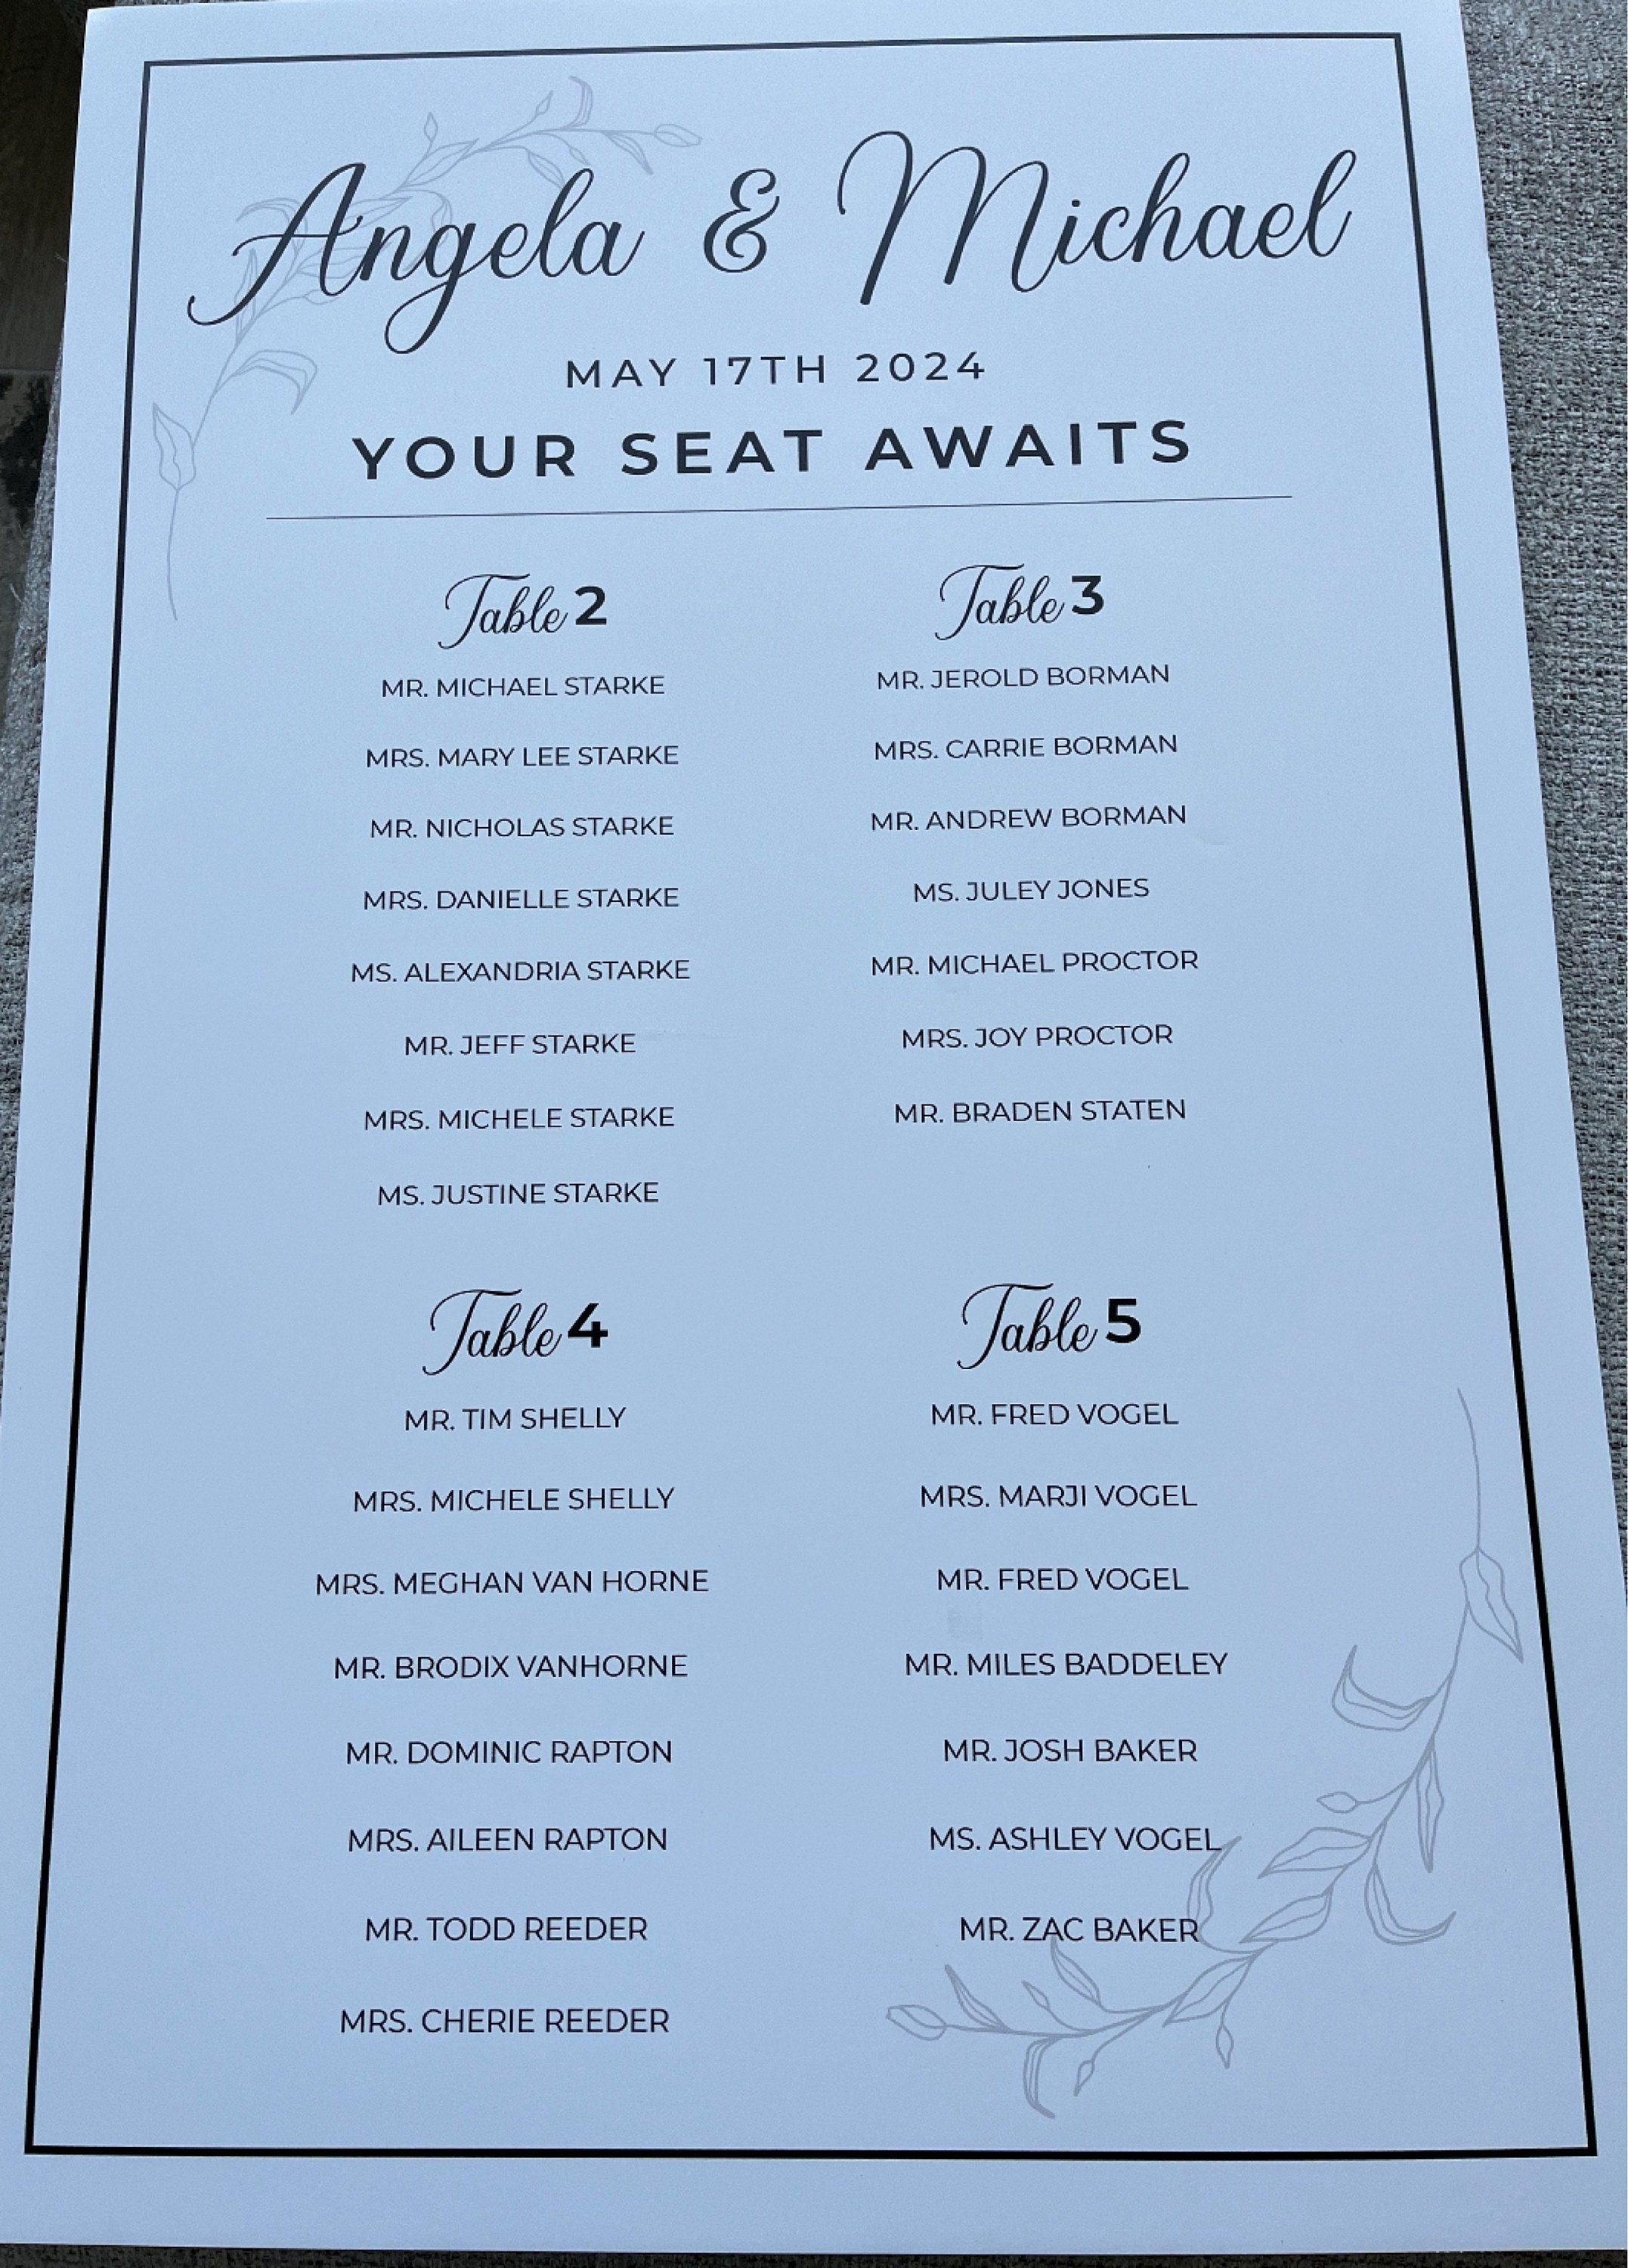 Angela & Michael
MAY 17TH 2024
YOUR SEAT AWAITS
Table 2
MR. MICHAEL STARKE
MRS. MARY LEE STARKE
MR. NICHOLAS STARKE
MRS. DANIELLE STARKE
MS. ALEXANDRIA STARKE
MR. JEFF STARKE
MRS. MICHELE STARKE
MS. JUSTINE STARKE
Table 3
MR. JEROLD BORMAN
MRS. CARRIE BORMAN
MR. ANDREW BORMAN
MS. JULEY JONES
MR. MICHAEL PROCTOR
MRS. JOY PROCTOR
MR. BRADEN STATEN
Table 4
MR. TIM SHELLY
MRS. MICHELE SHELLY
MRS. MEGHAN VAN HORNE
MR. BRODIX VANHORNE
MR. DOMINIC RAPTON
MRS. AILEEN RAPTON
MR. TODD REEDER
MRS. CHERIE REEDER
Table 5
MR. FRED VOGEL
MRS. MARJI VOGEL
MR. FRED VOGEL
MR. MILES BADDELEY
MR. JOSH BAKER
MS. ASHLEY VOGEL
MR. ZAC BAKER